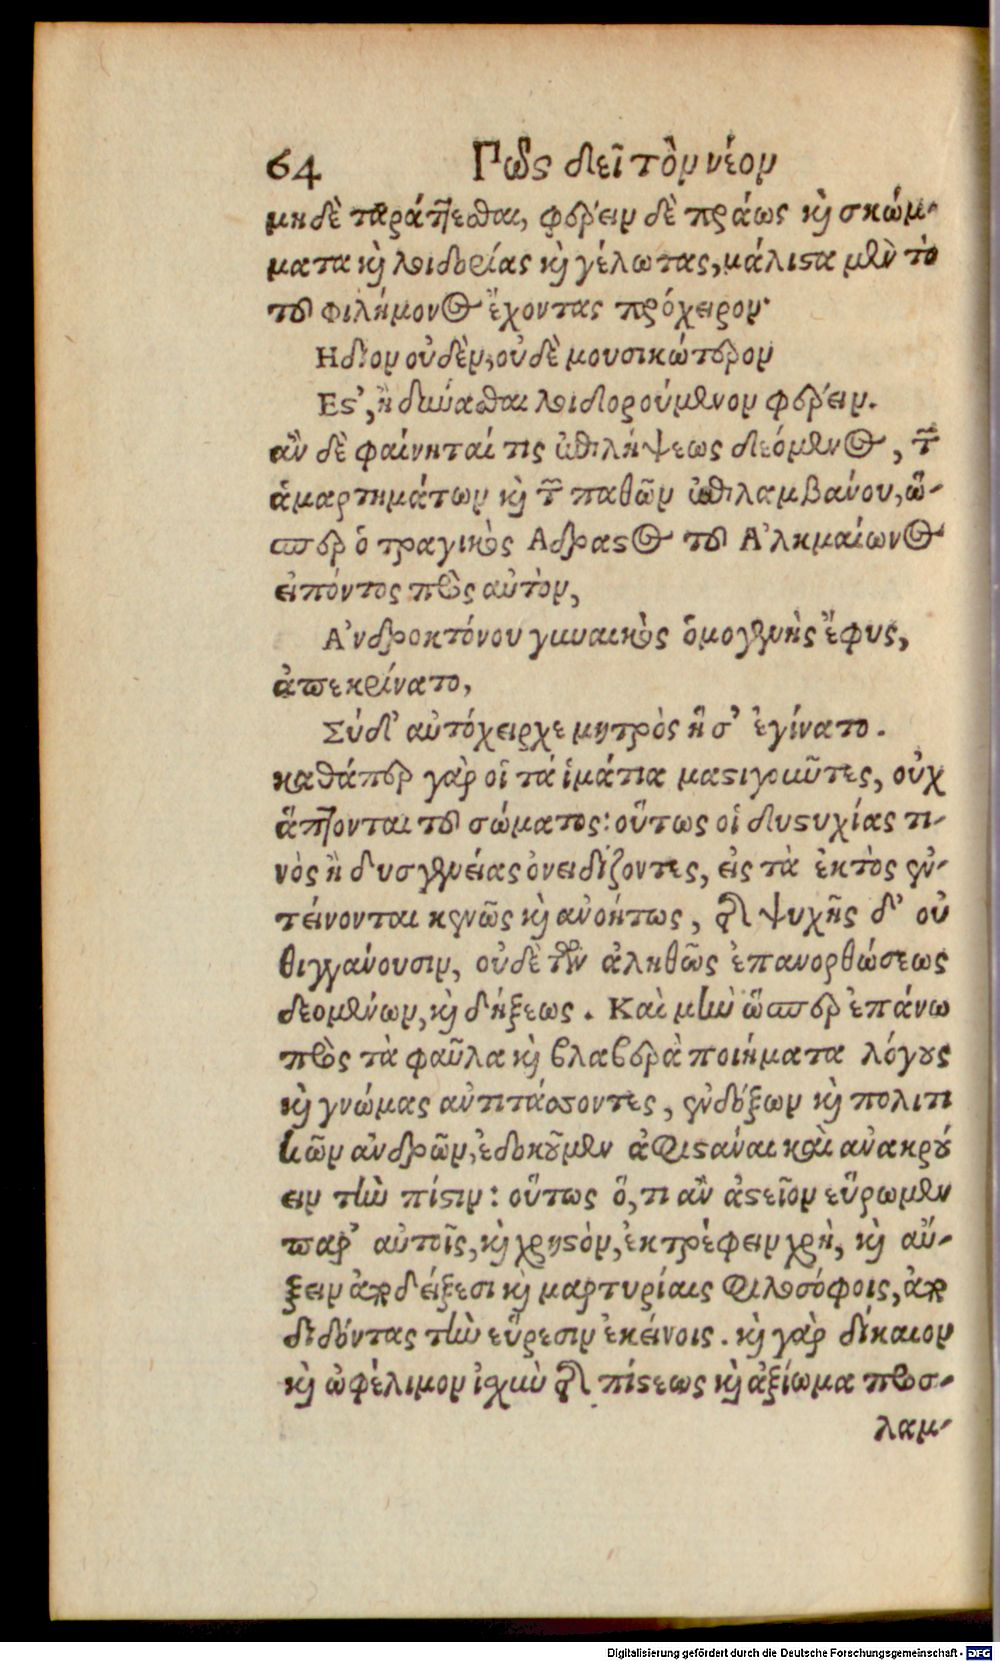 64 Πῶς δεῖ τὸν νέον
μηδὲ ταράττεσθαι, φέρειν δὲ πράως καὶ σκώμ-
ματα καὶ λοιδορίας καὶ γέλωτας, μάλιστα μὲν τὸ
τοῦ Φιλήμονος ἔχοντας πρόχειρον·
Ηδιον οὐδὲν, οὐδὲ μουσικώτερον
Εστ’, ἢ δύνασθαι λοιδορούμενον φέρειν.
ἂν δὲ φαίνηταί τις ἐπιλήψεως δεόμενος, τῶν
ἁμαρτημάτων καὶ τῶν παθῶν ἐπιλαμβάνου, ὥ-
σπερ ὁ τραγικὸς Αδραστος τοῦ Ἀλκμαίωνος
εἰπόντος πρὸς αὐτὸν,
Ἀνδροκτόνου γυναικὸς ὁμογενὴς ἔφυς,
ἀπεκρίνατο,
Σύ δ’ αὐτόχειρ γε μητρὸς ἥ σ’ ἐγίνατο.
καθάπερ γὰρ οἵ τά ἱμάτια μαστιγοῦντες, οὐχ
ἅπτονται τοῦ σώματος: οὕτως οἱ δυστυχίας τι-
νὸς ἢ δυσγενείας ὀνειδίζοντες, εἰς τὰ ἐκτὸς ἐν-
τείνονται κενῶς καὶ ἀνοήτως, τῆς ψυχῆς δ’ οὐ
θιγγάνουσιν, οὐδὲ τῶν ἀληθῶς ἐπανορθώσεως
δεομένων, καὶ δήξεως. Καὶ μὴν ὥσπερ ἐπάνω
πρὸς τὰ φαῦλα καὶ βλαβερὰ ποιήματα λόγους
καὶ γνώμας ἀντιτάσσοντες, ἐνδόξων καὶ πολιτι
κῶν ἀνδρῶν, ἐδοκοῦμεν ἀφιστάναι καὶ ἀνακρού
ειν τὴν πίστιν: οὕτως ὅ, τι ἂν ἀστεῖον εὕρωμεν
παρ’ αὐτοῖς, καὶ χρηστὸν, ἐκτρέφειν χρὴ, καὶ αὔ-
ξειν ἀποδείξεσι καὶ μαρτυρίαις φιλοσόφοις, ἀπο
διδόντας τὴν εὕρεσιν ἐκείνοις. καὶ γὰρ δίκαιον
καὶ ὠφέλιμον ἰσχὺν τῆς πίστεως καὶ ἀξίωμα προσ-
λαμ-
Digitalisierung gefördert durch die Deutsche Forschungsgemeinschaft - DFG